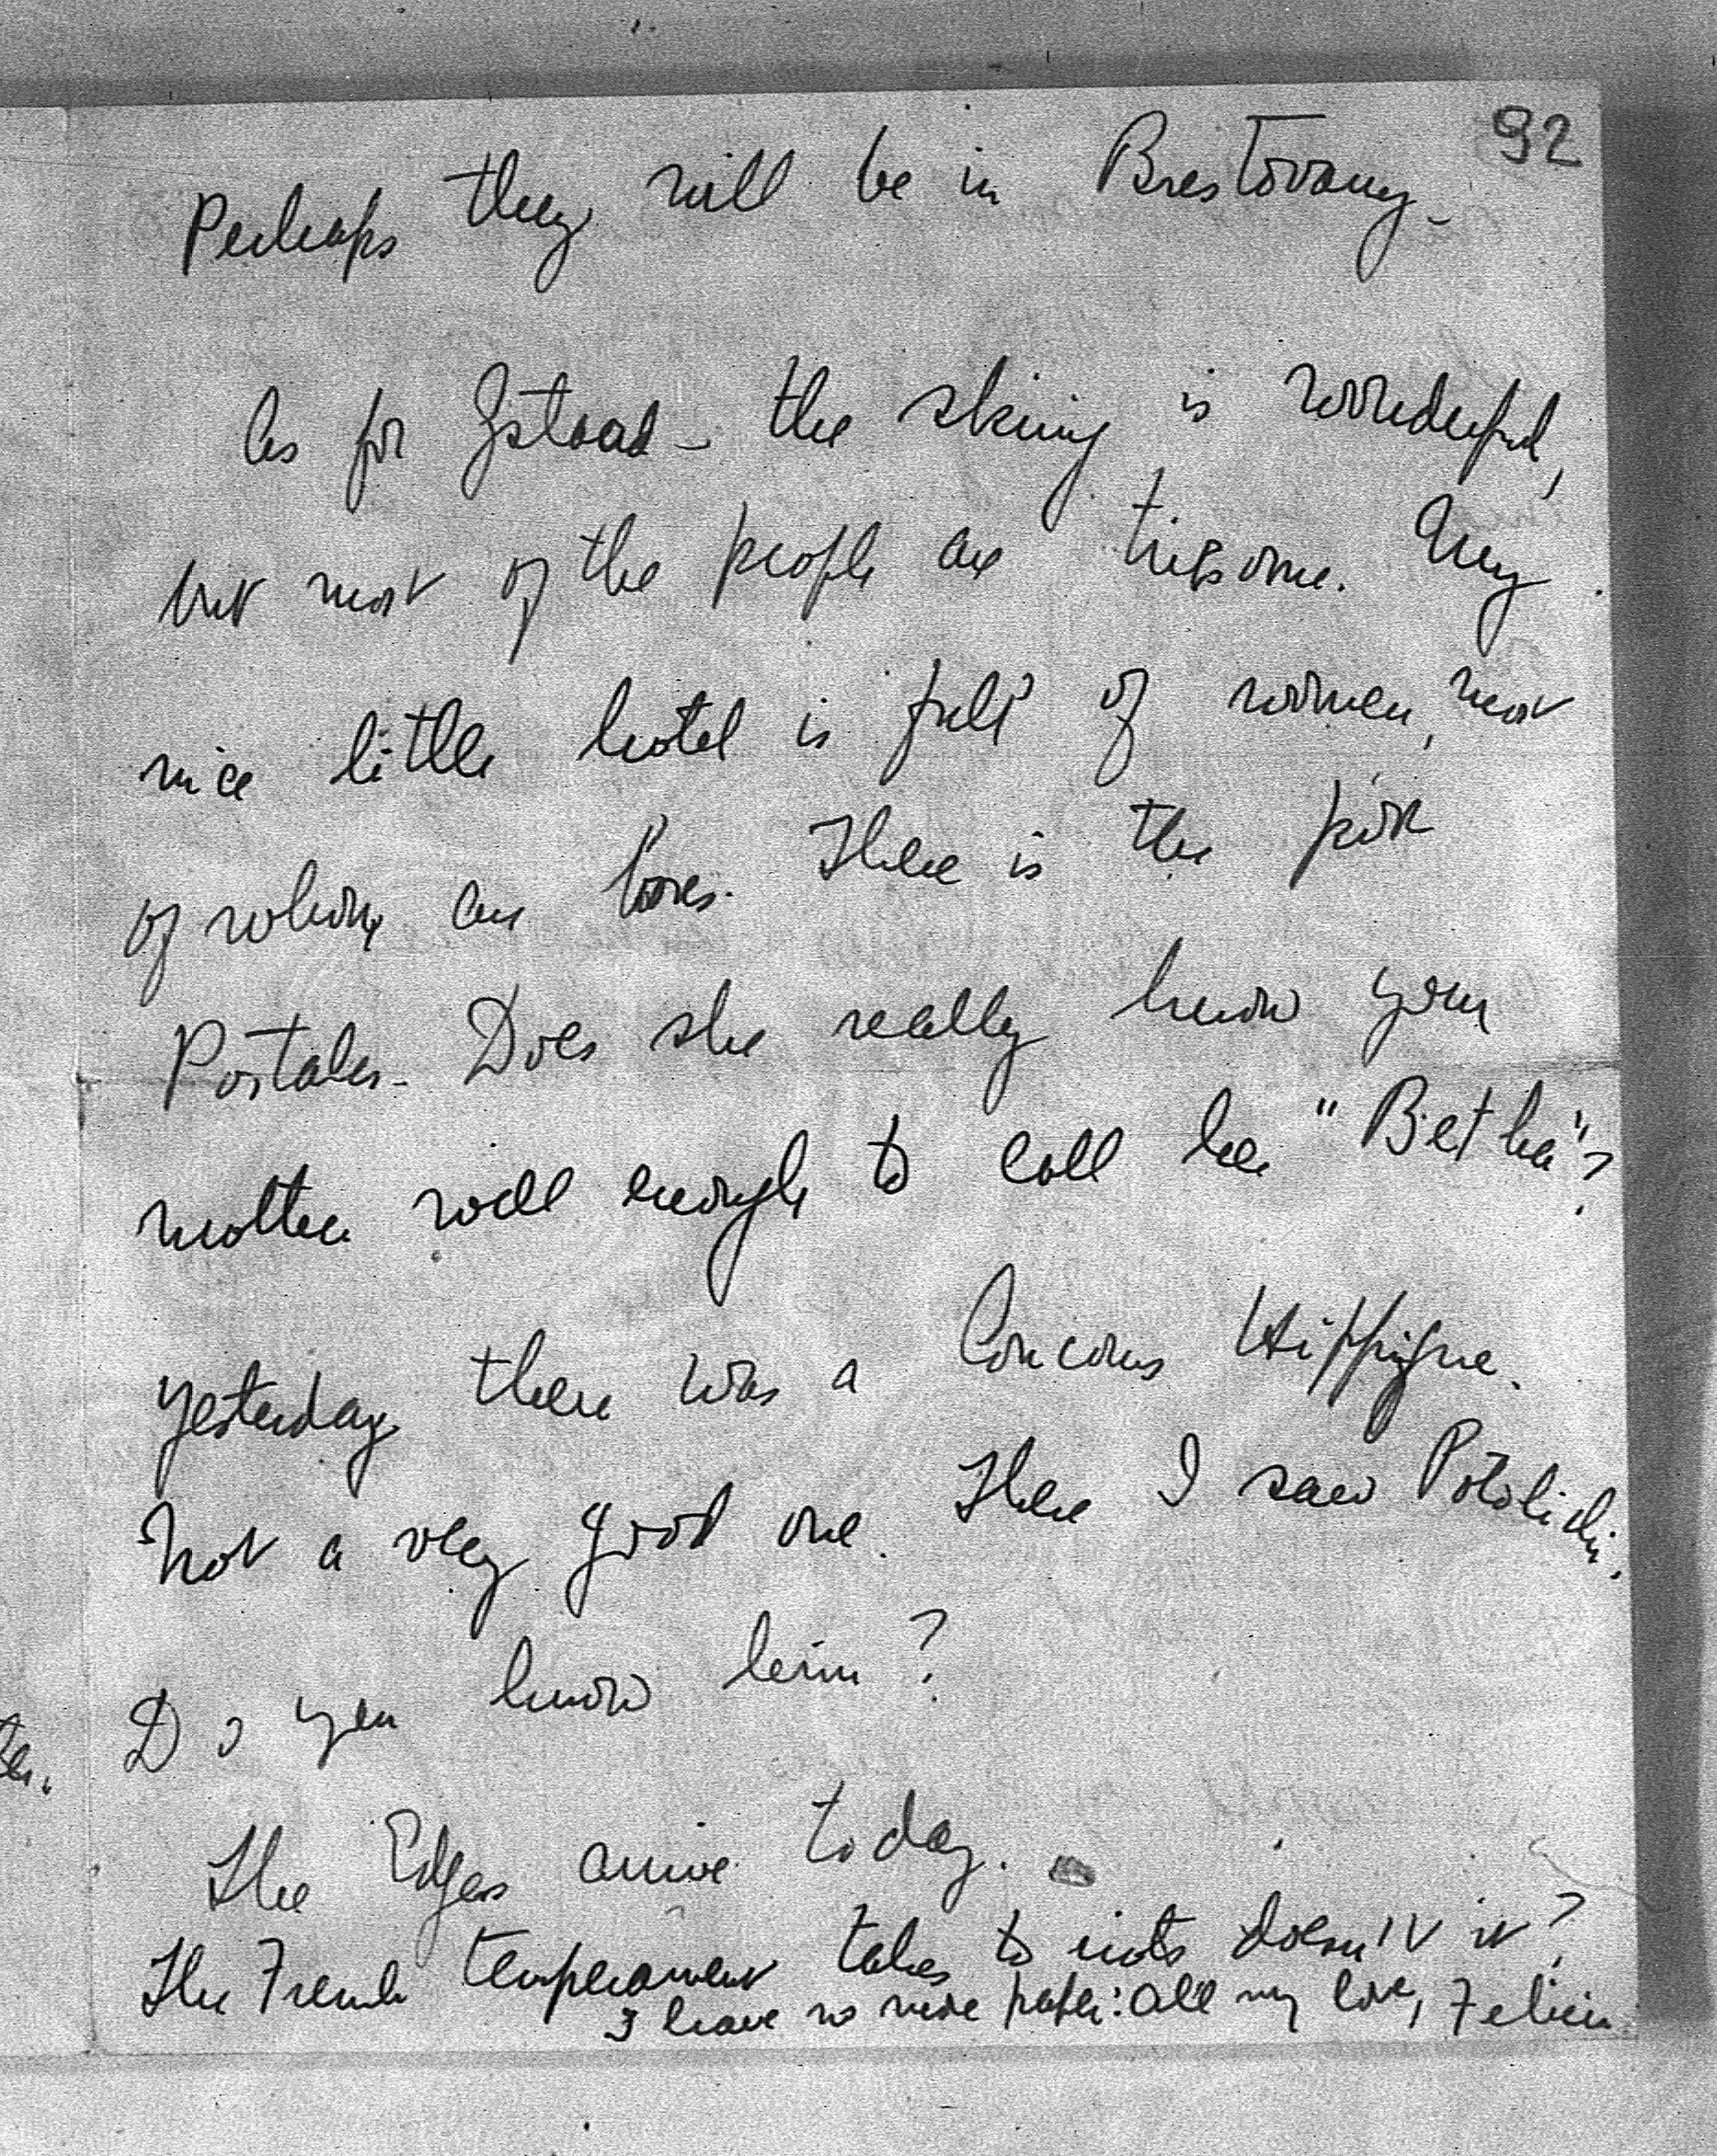 92
Perhaps they will be in Brestovany -
As for Gstaad - the skiing is wonderful,
but most of the people are tiresome. My
nice little hotel is full of women, most
of whom are bores. There is the
Portales - Does she really know your
mother well enough to call her "Bietha"?
Yesterday there was a Concours Hippique.
Not a very good one. There I saw
Do you know him?
The Edges arrive today.
The French temperament takes to riots doesn't it?
I have no more paper: all my love, Felicia